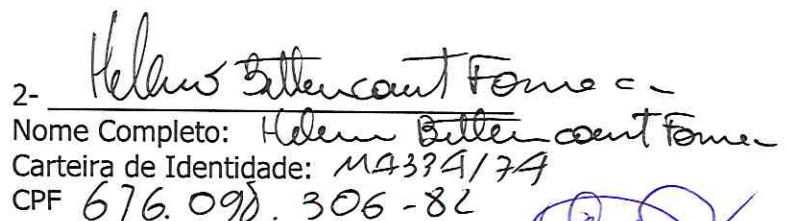 2- Heleno Bittencourt Fonseca
Nome Completo: Heleno Bittencourt Fonseca
Carteira de Identidade:
CPF 676.098.306-82